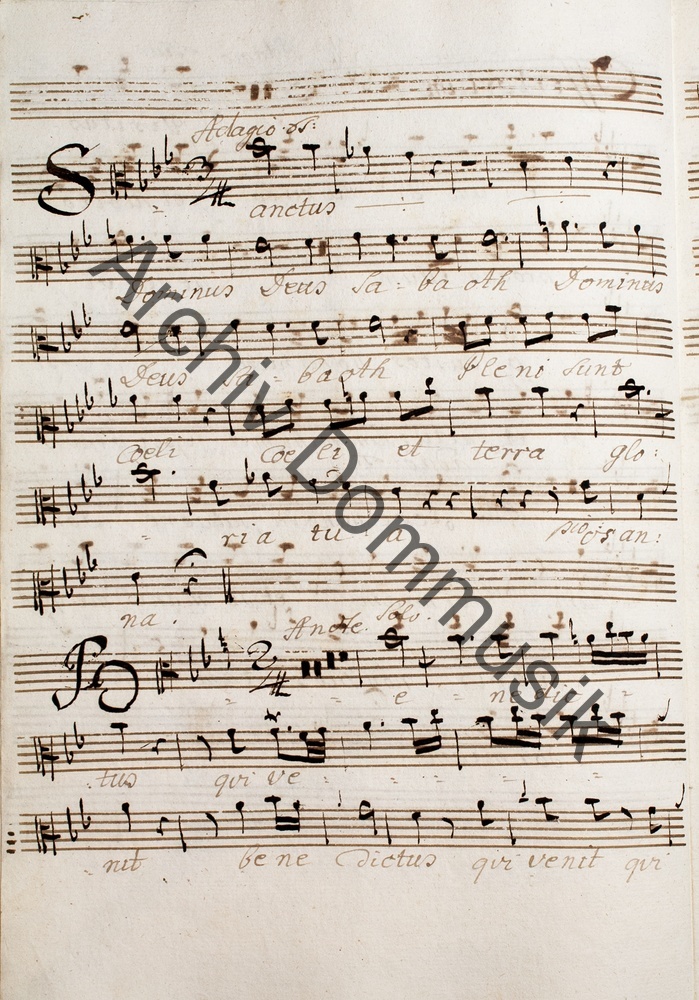 Adagio
Sanctus
Dominus Deus Sa - ba oth Dominus
Deus Sa - ba oth Pleni sunt
coeli coe lei et terra glo:
- ria tu - a osan:
na.
Andte. Solo.
Be - ne dic -
tus qui ve - - - -
nit be ne dictus qui venit qui
Archiv Dommusik